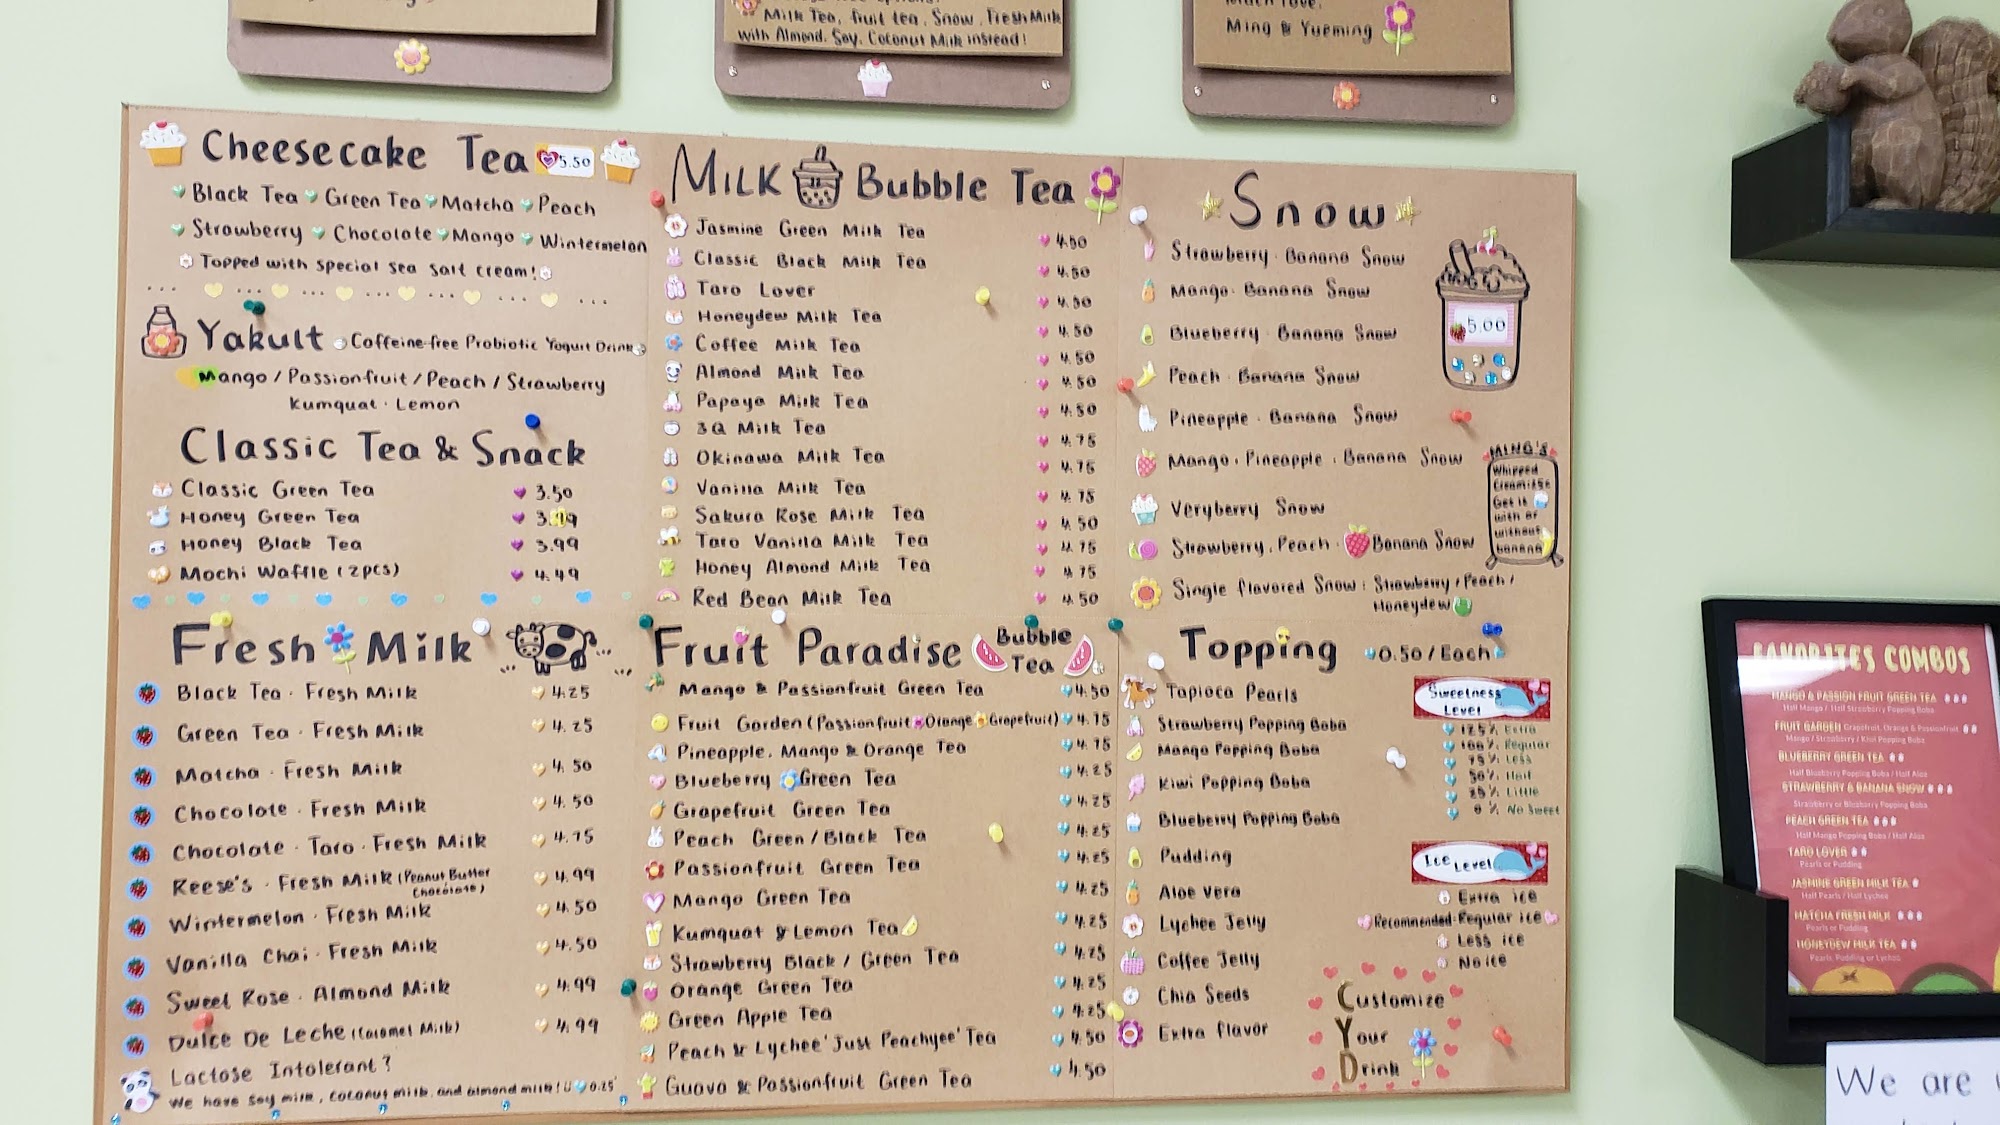 Milk Tea, fruit tea, Snow, Fresh Milk
with Almond, Soy, Coconut Milk instead!
Ming & Yueming
Cheesecake Tea 5.50
Black Tea Green Tea Matcha Peach
Strawberry Chocolate Mango Wintermelon
Topped with special sea salt cream!
Yakult Caffeine-free Probiotic Yogurt Drink
Mango / Passionfruit / Peach / Strawberry
Kumquat · Lemon
Classic Tea & Snack
Classic Green Tea 3.50
Honey Green Tea 3.99
Honey Black Tea 3.99
Mochi Waffle (2pcs) 4.49
Milk Bubble Tea
Jasmine Green Milk Tea 4.50
Classic Black Milk Tea 4.50
Taro Lover 4.50
Honeydew Milk Tea 4.50
Coffee Milk Tea 4.50
Almond Milk Tea 4.50
Papaya Milk Tea 4.50
3Q Milk Tea 4.75
Okinawa Milk Tea 4.75
Vanilla Milk Tea 4.75
Sakura Rose Milk Tea 4.50
Taro Vanilla Milk Tea 4.75
Honey Almond Milk Tea 4.75
Red Bean Milk Tea 4.50
Snow
5.00
Strawberry · Banana Snow
Mango · Banana Snow
Blueberry · Banana Snow
Peach · Banana Snow
Pineapple · Banana Snow
Mango · Pineapple · Banana Snow
Veryberry Snow
Strawberry · Peach · Banana Snow
Single flavored Snow : Strawberry / Peach /
Honeydew
MING'S
Whipped
Get it
with or
without
banana
Fresh Milk
Black Tea · Fresh Milk 4.25
Green Tea · Fresh Milk 4.25
Matcha · Fresh Milk 4.50
Chocolate · Fresh Milk 4.50
Chocolate · Taro · Fresh Milk 4.75
Reese's · Fresh Milk (Peanut Butter
Chocolate) 4.99
Wintermelon · Fresh Milk 4.50
Vanilla Chai · Fresh Milk 4.50
Sweet Rose · Almond Milk 4.99
Dulce De Leche (Caramel Milk) 4.99
Lactose Intolerant?
We have soy milk, coconut milk, and almond milk! 0.25
Fruit Paradise Bubble Tea
Mango & Passionfruit Green Tea 4.50
Fruit Garden (Passionfruit Orange Grapefruit) 4.75
Pineapple, Mango & Orange Tea 4.75
Blueberry Green Tea 4.25
Grapefruit Green Tea 4.25
Peach Green / Black Tea 4.25
Passionfruit Green Tea 4.25
Mango Green Tea 4.25
Kumquat & Lemon Tea 4.25
Strawberry Black / Green Tea 4.25
Orange Green Tea 4.25
Green Apple Tea 4.25
Peach & Lychee 'Just Peachyee' Tea 4.50
Guava & Passionfruit Green Tea 4.50
Topping 0.50 / Each
Tapioca Pearls
Strawberry Popping Boba
Mango Popping Boba
Kiwi Popping Boba
Blueberry Popping Boba
Pudding
Aloe Vera
Lychee Jelly
Coffee Jelly
Chia Seeds
Extra flavor
Sweetness
Level
125% Extra
100% Regular
75% Less
50% Half
25% Little
0% No Sweet
Ice Level
Extra ice
Recommended: Regular ice
Less ice
No ice
Customize
Your
Drink
FAVORITES COMBOS
MANGO & PASSION FRUIT GREEN TEA
Half Mango / Half Strawberry Popping Boba
FRUIT GARDEN Grapefruit, Orange & Passionfruit
Mango / Strawberry / Kiwi Popping Boba
BLUEBERRY GREEN TEA
Half Blueberry Popping Boba / Half Aloe
STRAWBERRY & BANANA SNOW
Strawberry or Blueberry Popping Boba
PEACH GREEN TEA
Half Mango Popping Boba / Half Aloe
TARO LOVER
Pearls or Pudding
JASMINE GREEN MILK TEA
Half Pearls / Half Lychee
MATCHA FRESH MILK
Pearls or Pudding
HONEYDEW MILK TEA
Pearls, Pudding or Lychee
We are